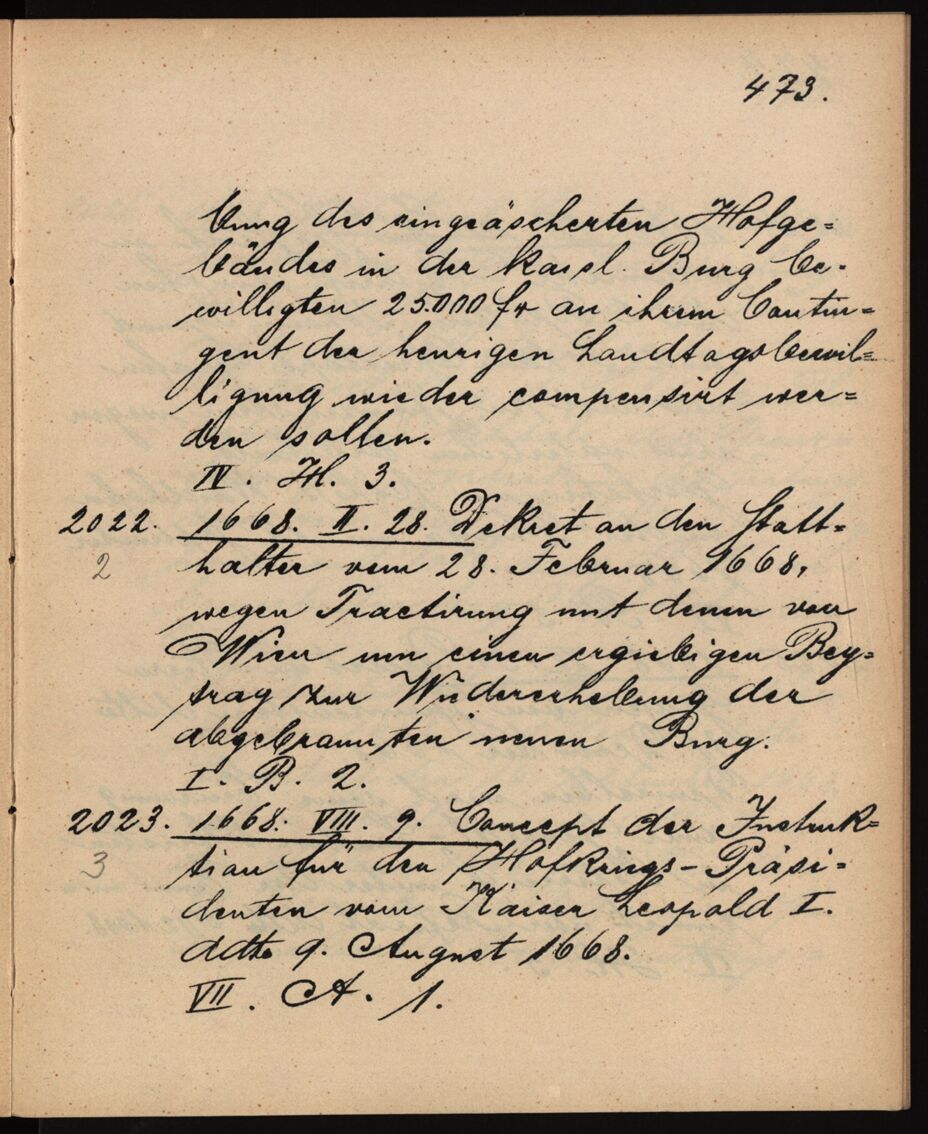 473.
bung des eingeäscherten Hofge=
bäudes in der kaisl. Burg be-
willigten 25.000 fr an ihrem Contin=
gent der heurigen Landtagsbewil=
ligung wieder compensirt wer=
den sollen.
IV. H. 3.
2022. 1668. II. 28. Dekret an den Statt=
2 halter vom 28. Februar 1668,
wegen Tractirung mit denen von
Wien um einen ergiebigen Bey=
trag zur Wiedererhebung der
abgebrannten neuen Burg.
I. B. 2.
2023. 1668. VIII. 9. Concept der Instruk=
3 tion für den Hofkriegs-Präsi=
denten vom Kaiser Leopold I.
ddto 9. August 1668.
VII. A. 1.